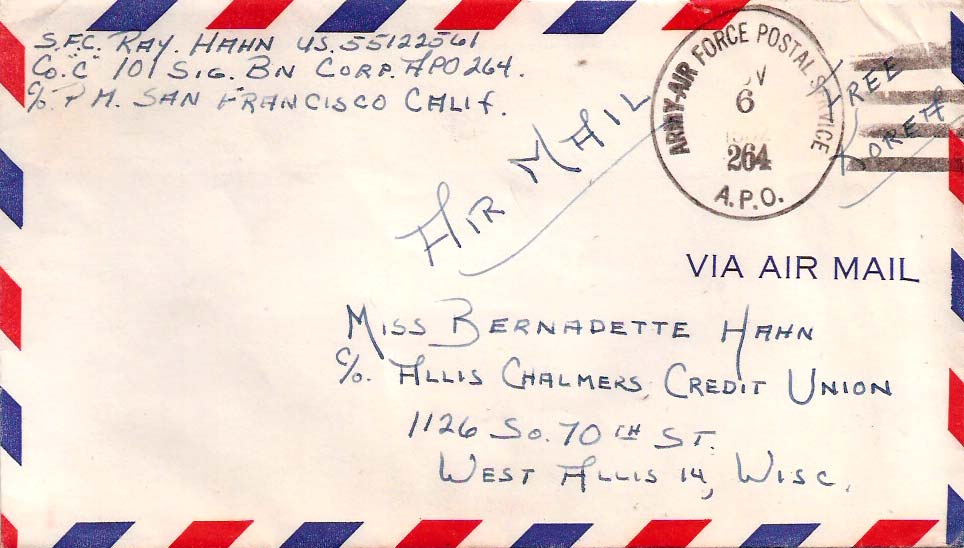 S.F.C. RAY. HAHN US.55122561
Co."C" 101 SIG. BN CORP. APO 264.
c/o P.M. SAN FRANCISCO CALIF.
AIR MAIL
ARMY-AIR FORCE POSTAL SERVICE
6
264
A.P.O.
FREE
KOREA
VIA AIR MAIL
MISS BERNADETTE HAHN
c/o. ALLIS CHALMERS CREDIT UNION
1126 So. 70TH ST.
WEST ALLIS 14, WISC.